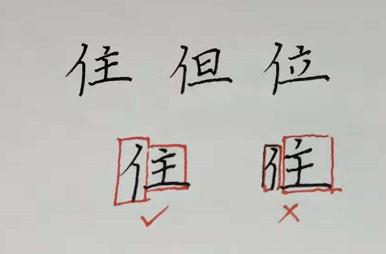 住 但 位
住 住